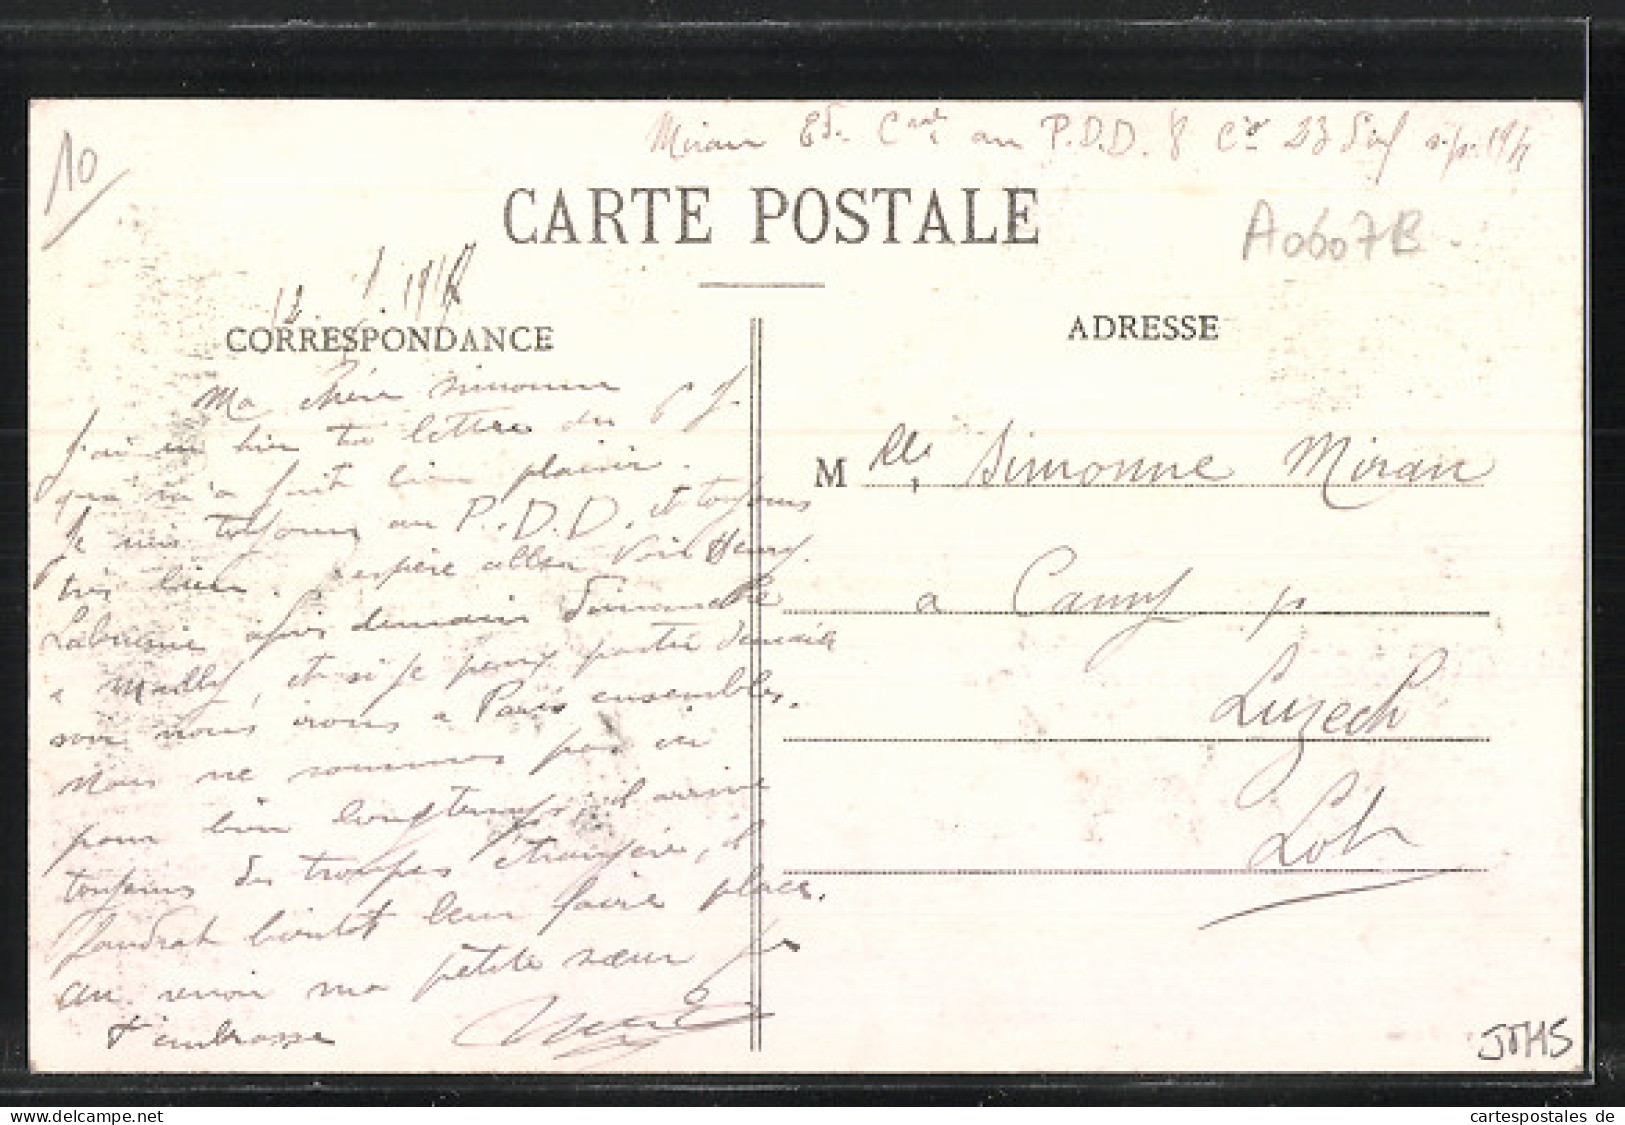 10
Miran Ed. au P.D.D. 8 Cie 23 s.p. 194
CARTE POSTALE
A0607B
CORRESPONDANCE
ADRESSE
Ma chère Simonne
J'ai eu hier ta lettre du 6 J.
qui m'a fait bien plaisir.
Je suis toujours au P.D.D. et toujours
très bien. J'espère aller voir Henry
Labrunie après demain Dimanche
a Mailly, et si je peux partir demain
soir nous irons a Paris ensembles.
Nous ne sommes pas ici
pour bien longtemps, il arrive
toujours des troupes étrangère, il
faudrat bientot leur faire place.
au revoir ma petite sœur je
t'embrasse
Mlle Simonne Miran
a Camy p
Luzech
Lot
JOMS
cartespostales de